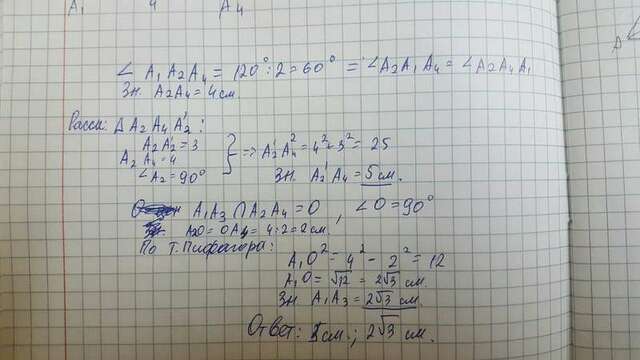 A₁ 4 A₄
∠ A₁A₂A₄ = 120° : 2 = 60° = ∠A₂A₁A₄ = ∠A₂A₄A₁
Зн. A₂A₄ = 4 см.
Рассм. Δ A₂A₄A₂' :
A₂A₂' = 3
A₂A₄ = 4
∠A₂ = 90°
} => A₂'A₄² = 4² + 3² = 25
Зн. A₂'A₄ = 5 см.
A₁A₃ ∩ A₂A₄ = O , ∠O = 90°
A₂O = OA₄ = 4 : 2 = 2 см
По т. Пифагора:
A₁O² = 4² - 2² = 12
A₁O = √12 = 2√3 см.
Зн A₁A₃ = 2√3 см.
Ответ: 5 см.; 2√3 см.